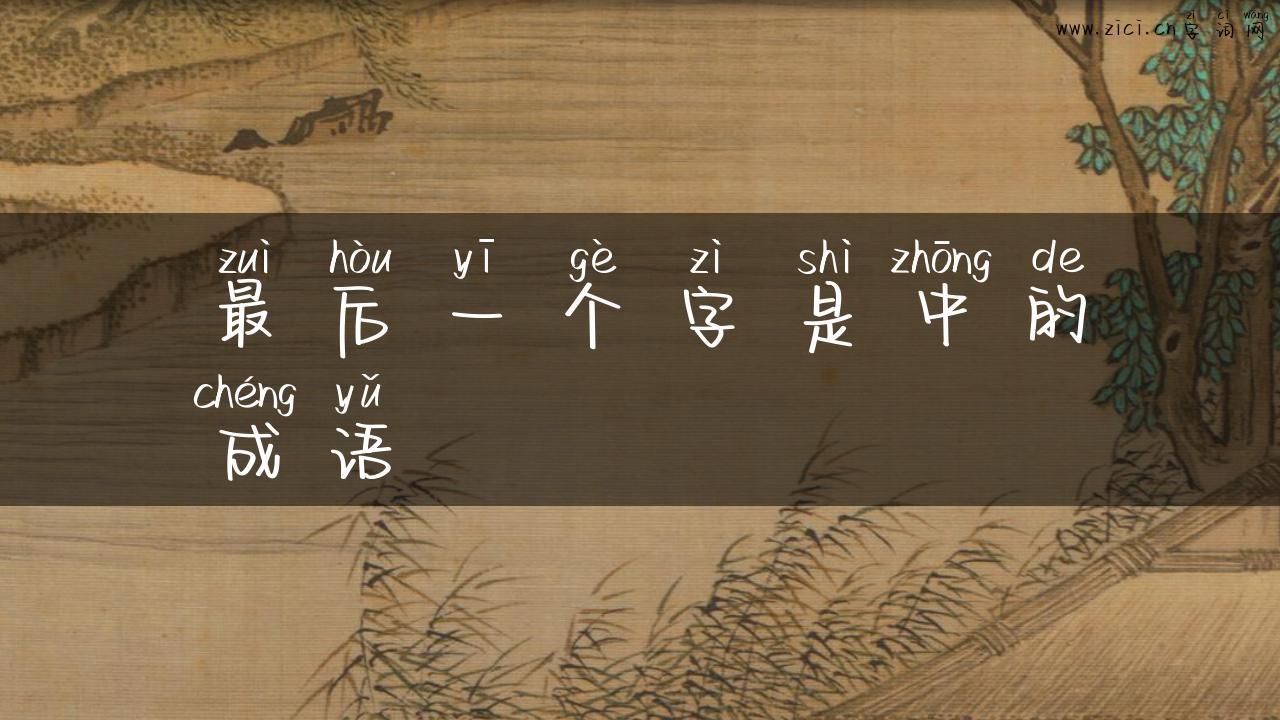 zì cí wǎng
www.zici.cn字词网
zuì hòu yī gè zì shì zhōng de
最后一个字是中的
chéng yǔ
成语